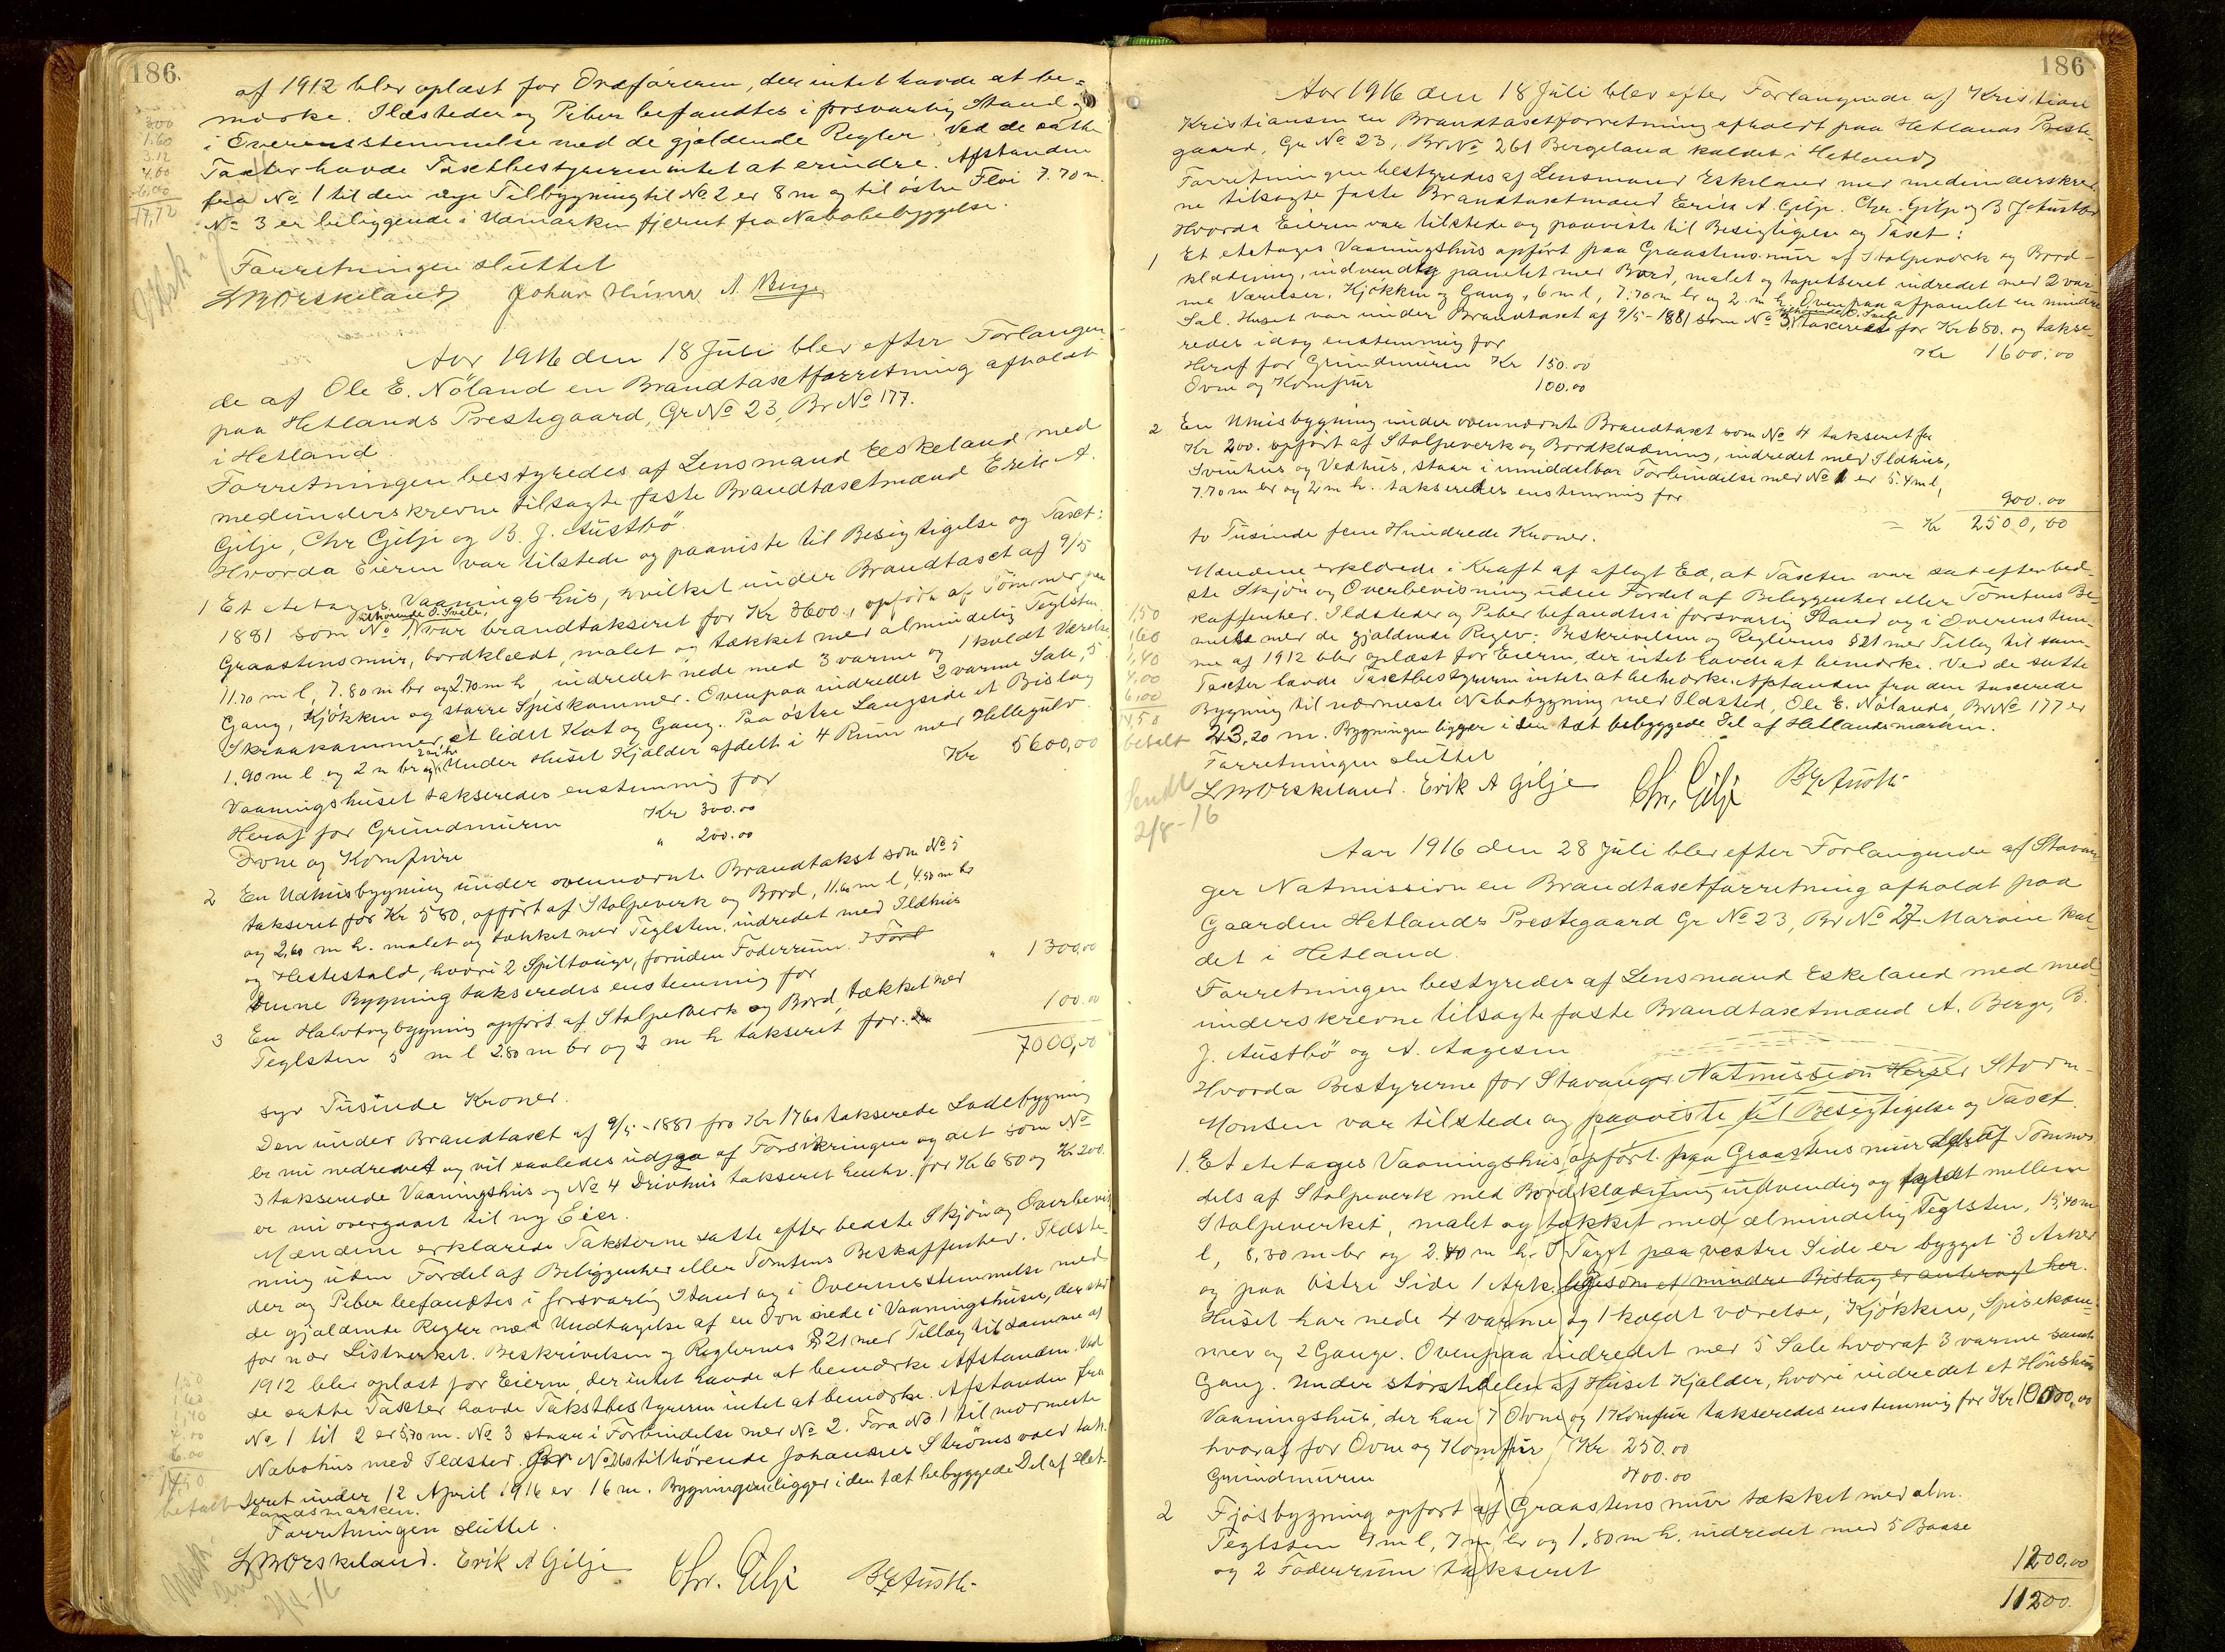 186.
af 1912 blev oplæst for Ordføreren, der intet havde at be-
mærke. Ildsteder og Piber befandtes i forsvarlig Stand og
i Overensstemmelse med de gjældende Regler. Ved de satte
Taxter havde Taxtbestyreren intet at erindre. Afstanden
fra No 1 til den nye Tilbygning til No 2 er 8 m og til östre Flöi 7.70 m.
No 3 er beliggende i Udmarken fjernt fra Nabobebyggelse.
300
1.60
3.12
4.00
6.00
17,72
Forretningen sluttet
Johan A Berge
Aar 1916 den 18 Juli blev efter Forlangen-
de af Ole E. Nöland en Brandtaxtforretning afholdt
paa Hetlands Prestegaard, Gr No 23, Br No 177.
i Hetland.
Forretningen bestyredes af Lensmand Eeskeland med
medunderskrevne tilsagte faste Brandtaxtmænd Erik A.
Gilje, Chr Gilje og B. J. Austbö.
Hvorda Eieren var tilstede og paaviste til Besigtigelse og Taxt:
1 Et etetages Vaaningshus, hvilket under Brandtaxt af 9/5
tilhörende O. Svele,
1881 som No 1 var brandtakseret for Kr 3600, opfört af Tömmer paa
Graastensmur, bordklædt, malet og tækket med almindelig Teglsten
11.70 m l, 7.80 m br og 2.70 m h, indredet nede med 3 varme og 1 koldt Værelse,
Gang, Kjøkken og större Spiskammer. Ovenpaa indredet 2 varme Sale, 5
Skraakammer, et lidet Kot og Gang. Paa östre Langside et Bislag
1.90 m l og 2 m br og Under Huset Kjælder afdelt i 4 Rum med Hellegulv
Vaaningshuset takseredes enstemmig for Kr 5600,00
Heraf for Grundmuren Kr 300.00
Ovne og Komfure " 200.00
2 En Udhusbygning under ovennævnte Brandtakst som No 5
takseret for Kr 580, opfört af Stolpeverk og Bord, 11.60 m l, 4.50 m br
og 2,60 m h. malet og tækket med Teglsten, indredet med Ildhus
og Hestestald, hvori 2 Spiltouge, foruden Foderrum.
Denne Bygning takseredes enstemmig for " 1300,00
3 En Halvtagbygning opfört af Stolpeverk og Bord, tækket med
Teglsten 5 m l 2.80 m br og 2 m h takseret for 100.00
7000,00
syv Tusinde Kroner.
Den under Brandtaxt af 9/5-1881 fro Kr 1760 takserede Ladebygning
er nu nedrevet og vil saaledes udgaa af Forsikringen og det som No
3 takserede Vaaningshus og No 4 Drivhus takseret for Kr 680 og Kr 200
er nu overgaaet til ny Eier.
Mændene erklærede Taksterne satte efter bedste Skjön og Overbevis-
ning uden Fordel af Beliggenhed eller Tomtens Beskaffenhed. Ildste-
der og Piber befandtes i forsvarlig Stand og i Overensstemmelse med
de gjældende Regler med Undtagelse af en Ovn nede i Vaaningshuset, der staar
for nær Listverket. Beskrivelsen og Reglernes § 21 med Tillæg til samme af
1912 blev oplæst for Eieren, der intet havde at bemærke. Ved
de satte Taxter havde Takstbestyreren intet at bemærke. Afstanden fra
No 1 til 2 er 5,70 m. No 3 staar i Forbindelse med No 2. Fra No 1 til nærmeste
Nabohus med Ildsted Br No 260 tilhörende Johannes Strömsvold tak-
seret under 12 April 1916 er 16 m. Bygningen ligger i den tæt bebyggede Del af Het-
landsmarken.
1.60
1,40
6.00
14.50
betalt
Forretningen sluttet.
Erik A Gilje Chr. Gilje
186
Aar 1916 den 18 Juli blev efter Forlangende af Kristian
Kristiansen en Brandtaxtforretning afholdt paa Hetlands Preste-
gaard, Gr No 23, Br No 261 Bergeland kaldet i Hetland
Forretningen bestyredes af Lensmand Eskeland med medunderskrev-
ne tilsagte faste Brandtaxtmænd Erik A. Gilje. Chr. Gilje og B J Austbö
Hvorda Eieren var tilstede og paaviste til Besigtigelse og Taxt:
1 Et etetages Vaaningshus opfört paa Graastensmur af Stolpeværk og Bord-
klædning, indvendig panelet med Bord, malet og tapetseret indredet med 2 var-
me Værelser, Kjøkken og Gang, 6 m l, 7.70 m br og 2. m h. Ovenpaa afpanelet en mindre
tilhörende O. Svele
Sal. Huset var under Brandtaxt af 9/5-1881 som No 3 taxeret for Kr 680. og takse-
redes idag enstemmig for Kr 1600.00
Heraf for Grundmuren Kr 150.00
Ovne og Komfur 100.00
2 En Uthusbygning under ovennævnte Brandtaxt som No 4 takseret for
Kr 200. opfört af Stolpeverk og Bordklædning, indredet med Ildhus,
Svinhus og Vedhus, staar i umiddelbar Forbindelse med No 1 er 5.4 m l,
7.70 m br og 2 m h. takseredes enstemmig for 900.00
to Tusinde fem Hundrede Kroner. = Kr 2500,00
Mændene erklærede i Kraft af aflagt Ed, at Taxten var sat efter bed-
ste Skjön og Overbevisning uden Fordel af Beliggenhed eller Tomtens Be-
skaffenhed. Ildsteder og Piber befandtes i forsvarlig Stand og i Overenstem-
melse med de gjældende Regler. Beskrivelsen og Reglernes § 21 med Tillæg til sam-
me af 1912 blev oplæst for Eieren, der intet havde at bemærke. Ved de satte
Taxter havde Taxtbestyreren intet at bemærke. Afstanden fra den taxerede
Bygning til nærmeste Nabobygning med Ildsted, Ole E. Nölands, Br No 177 er
23,20 m. Bygningen ligger i den tæt bebyggede Del af Hetlandsmarken.
1,50
1.60
1,40
4.00
6.00
14,50
betalt
Forretningen sluttet
Erik A Gilje Chr. Gilje
Sendt
2/8-16
Aar 1916 den 28 Juli blev efter Forlangende af Stavan-
ger Natmission en Brandtaxtforretning afholdt paa
Gaarden Hetlands Prestegaard Gr No 23, Br No 27 kal-
det i Hetland.
Forretningen bestyredes af Lensmand Eskeland med med-
underskrevne tilsagte faste Brandtaxtmænd A. Berge, B.
J. Austbö og A. Aagesen
Hvorda Bestyrerne for Stavanger Natmission Storm-
Monsen var tilstede og paaviste til Besigtigelse og Taxt.
1. Et etetages Vaaningshus, opfört paa Graastens mur dels af Tömmer
dels af Stolpeverk med Bordklædning udvendig og mellem
Stolpeverket, malet og tækket med almindelig Teglsten, 15,40 m
l, 8,30 m br og 2.40 m h. I Taget paa vestre Side er bygget 3 Arker
og paa östre Side 1 Ark. ligesom et mindre Bislag er anbragt her.
Huset har nede 4 varme og 1 koldt værelse, Kjøkken, Spisekam-
mer og 2 Gange. Ovenpaa indredet med 5 Sale hvoraf 3 varme samt
Gang. Under störstedelen af Huset Kjælder, hvori indredet et Hönsehus
Vaaningshus, der har 7 Ovne og 1 Komfur takseredes enstemmig for Kr 10000,00
hvoraf for Ovne og Komfur Kr 250.00
Grundmuren 400.00
2 Fjøsbygning opfört af Graastens mur tækket med alm.
Teglsten 9 m l, 7 m br og 1.80 m h. indredet med 5 Baase
og 2 Foderrum takseret 1200.00
11200.